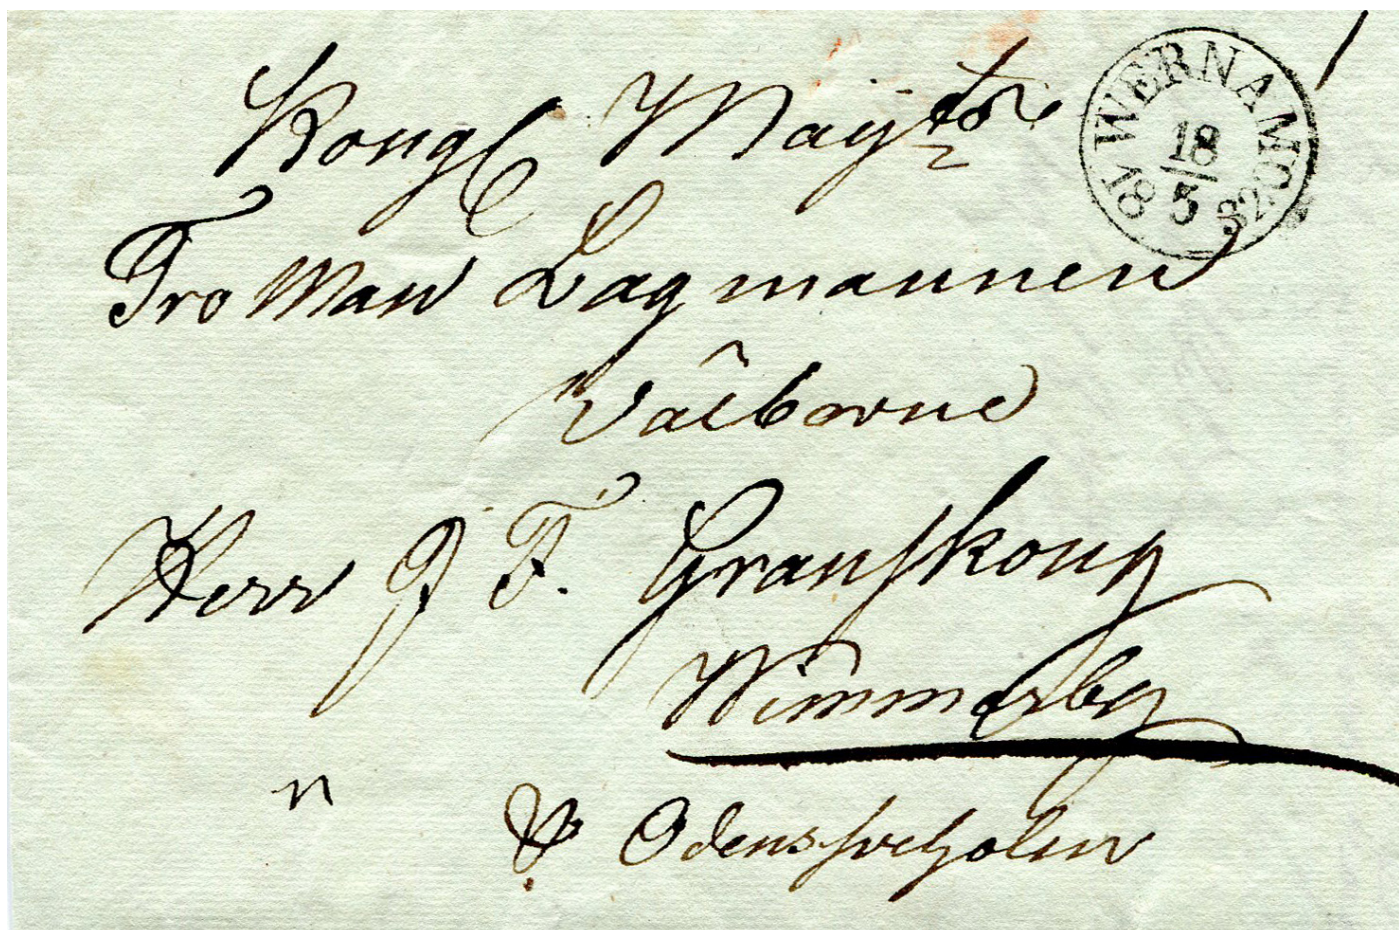 Kongl Maijtz
WERNAMO
18
3
1832
Tro Man Lagmannen
Välborne
Herr J F. Granskoug
Wimmerby
Odensviholm